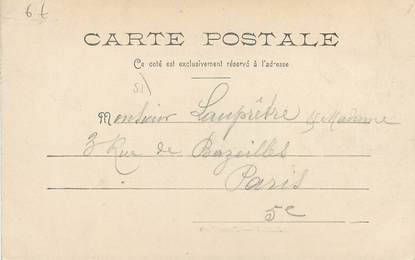 6t
CARTE POSTALE
Ce coté est exclusivement réservé à l'adresse
51)
Monsieur Lauprêtre & Madame
3 Rue de Bazeilles
Paris
5e